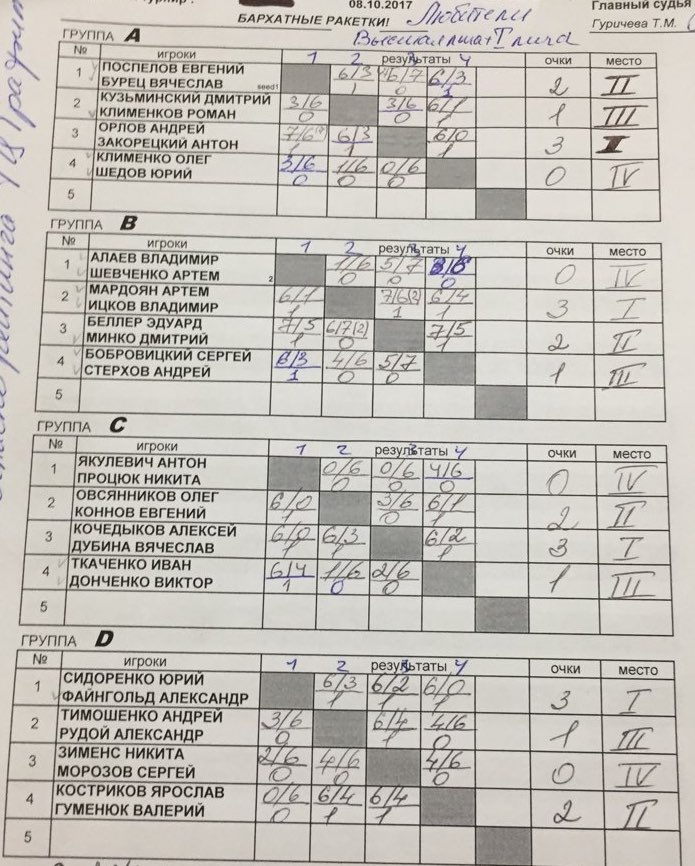 08.10.2017
Главный судья
БАРХАТНЫЕ РАКЕТКИ!
Любители
Гуричева Т.М.
ГРУППА A
№ игроки 1 2 результаты 4 очки место
1 ПОСПЕЛОВ ЕВГЕНИЙ
БУРЕЦ ВЯЧЕСЛАВ seed1
6/3 6/7 6/3 2 II
1 0 1
2 КУЗЬМИНСКИЙ ДМИТРИЙ
КЛИМЕНКОВ РОМАН
3/6 3/6 6/1 1 III
0 0 1
3 ОРЛОВ АНДРЕЙ
ЗАКОРЕЦКИЙ АНТОН
7/6 6/3 6/0 3 I
1 1 1
4 КЛИМЕНКО ОЛЕГ
ШЕДОВ ЮРИЙ
3/6 1/6 0/6 0 IV
0 0 0
5
ГРУППА B
№ игроки 1 2 результаты 4 очки место
1 АЛАЕВ ВЛАДИМИР
ШЕВЧЕНКО АРТЕМ 2
1/6 5/7 3/6 0 IV
0 0 0
2 МАРДОЯН АРТЕМ
ИЦКОВ ВЛАДИМИР
6/1 7/6(2) 6/4 3 I
1 1 1
3 БЕЛЛЕР ЭДУАРД
МИНКО ДМИТРИЙ
7/5 6/7(2) 7/5 2 II
1 0 1
4 БОБРОВИЦКИЙ СЕРГЕЙ
СТЕРХОВ АНДРЕЙ
6/3 4/6 5/7 1 III
1 0 0
5
ГРУППА C
№ игроки 1 2 результаты 4 очки место
1 ЯКУЛЕВИЧ АНТОН
ПРОЦЮК НИКИТА
0/6 0/6 4/6 0 IV
0 0 0
2 ОВСЯННИКОВ ОЛЕГ
КОННОВ ЕВГЕНИЙ
6/0 3/6 6/1 2 II
1 0 1
3 КОЧЕДЫКОВ АЛЕКСЕЙ
ДУБИНА ВЯЧЕСЛАВ
6/0 6/3 6/2 3 I
1 1 1
4 ТКАЧЕНКО ИВАН
ДОНЧЕНКО ВИКТОР
6/4 1/6 2/6 1 III
1 0 0
5
ГРУППА D
№ игроки 1 2 результаты 4 очки место
1 СИДОРЕНКО ЮРИЙ
ФАЙНГОЛЬД АЛЕКСАНДР
6/3 6/2 6/0 3 I
1 1 1
2 ТИМОШЕНКО АНДРЕЙ
РУДОЙ АЛЕКСАНДР
3/6 6/4 4/6 1 III
0 1 0
3 ЗИМЕНС НИКИТА
МОРОЗОВ СЕРГЕЙ
2/6 4/6 4/6 0 IV
0 0 0
4 КОСТРИКОВ ЯРОСЛАВ
ГУМЕНЮК ВАЛЕРИЙ
0/6 6/4 6/4 2 II
0 1 1
5